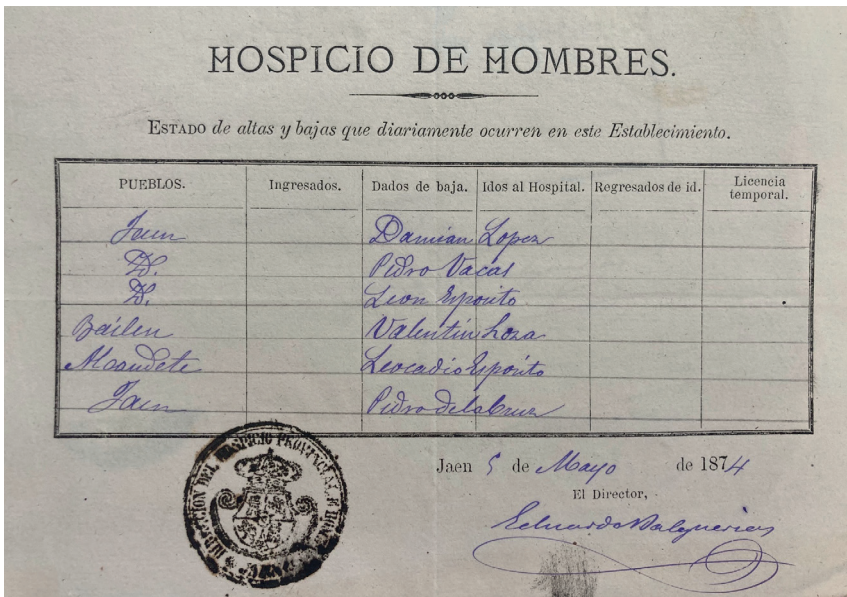 HOSPICIO DE HOMBRES.
ESTADO de altas y bajas que diariamente ocurren en este Establecimiento.
PUEBLOS. Ingresados. Dados de baja. Idos al Hospital. Regresados de id. Licencia temporal.
Jaen Damian Lopez
D. Pedro Vacas
D. Leon Esposito
Bailen Valentin Loza
Alcaudete Leocadio Esposito
Jaen Pedro de la Cruz
DIRECCION DEL HOSPICIO PROVINCIAL DE
JAEN
Jaen 5 de Mayo de 1874
El Director,
Eduardo Balguerias